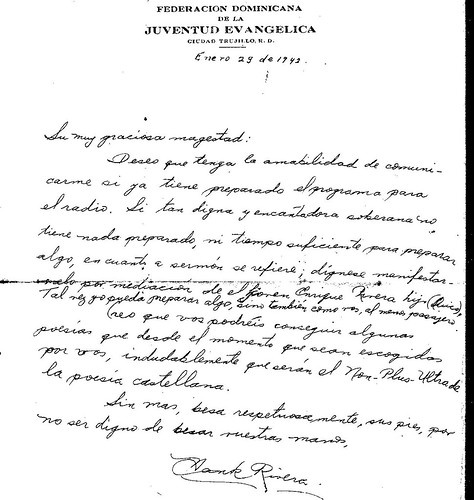 FEDERACION DOMINICANA
DE LA
JUVENTUD EVANGELICA
CIUDAD TRUJILLO, R. D.
Enero 29 de 1943.
Su muy graciosa magestad:
Deseo que tenga la amabilidad de comuni-
carme si ya tiene preparado el programa para
el radio. Si tan digna y encantadora soberana no
tiene nada preparado, ni tiempo suficiente para preparar
algo, en cuanto a sermón se refiere, dígnese manifestar-
melo por mediación de el joven Enrique Rivera hijo
Tal vez yo pueda preparar algo, sino también como vos, al menos pasajero.
Creo que vos podréis conseguir algunas
poesías que desde el momento que sean escogidas
por vos, indudablemente que serán el Non-Plus-Ultra de
la poesía castellana.
Sin mas, besa respetuosamente, sus pies, por
no ser digno de besar vuestras manos,
Hank Rivera.